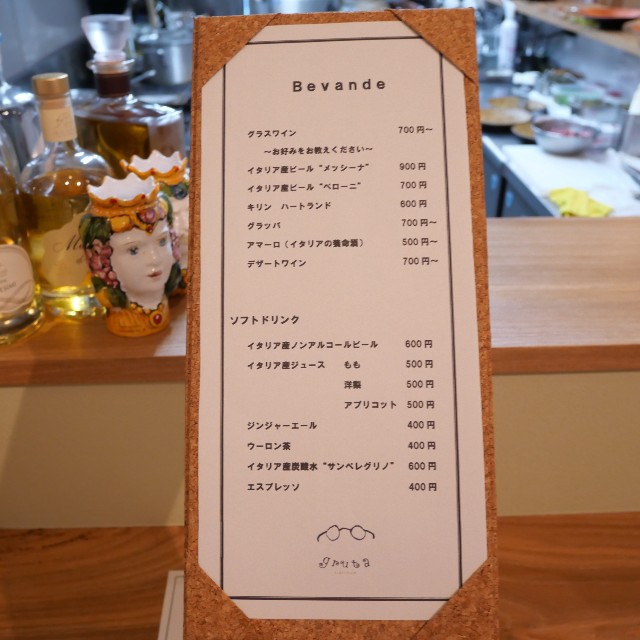 Bevande
グラスワイン 700円～
～お好みをお教えください～
イタリア産ビール“メッシーナ” 900円
イタリア産ビール“ペローニ” 700円
キリン ハートランド 600円
グラッパ 700円～
アマーロ（イタリアの養命酒） 500円～
デザートワイン 700円～
ソフトドリンク
イタリア産ノンアルコールビール 600円
イタリア産ジュース もも 500円
洋梨 500円
アプリコット 500円
ジンジャーエール 400円
ウーロン茶 400円
イタリア産炭酸水“サンペレグリノ” 600円
エスプレッソ 400円